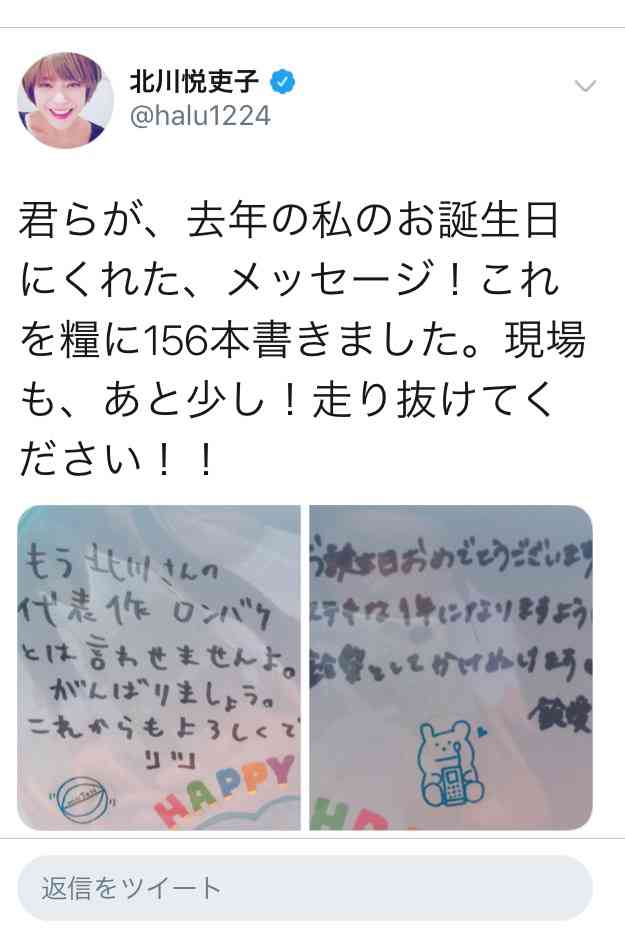 北川悦吏子
@halu1224
君らが、去年の私のお誕生日
にくれた、メッセージ！これ
を糧に156本書きました。現場
も、あと少し！走り抜けてく
ださい！！
もう北川さんの
代表作 ロンバケ
とは言わせませんよ。
がんばりましょう。
これからもよろしくで
リツ
HAPPY
お誕生日おめでとうございます
ステキな1年になりますよう
としてかけぬけます。
HA
返信をツイート